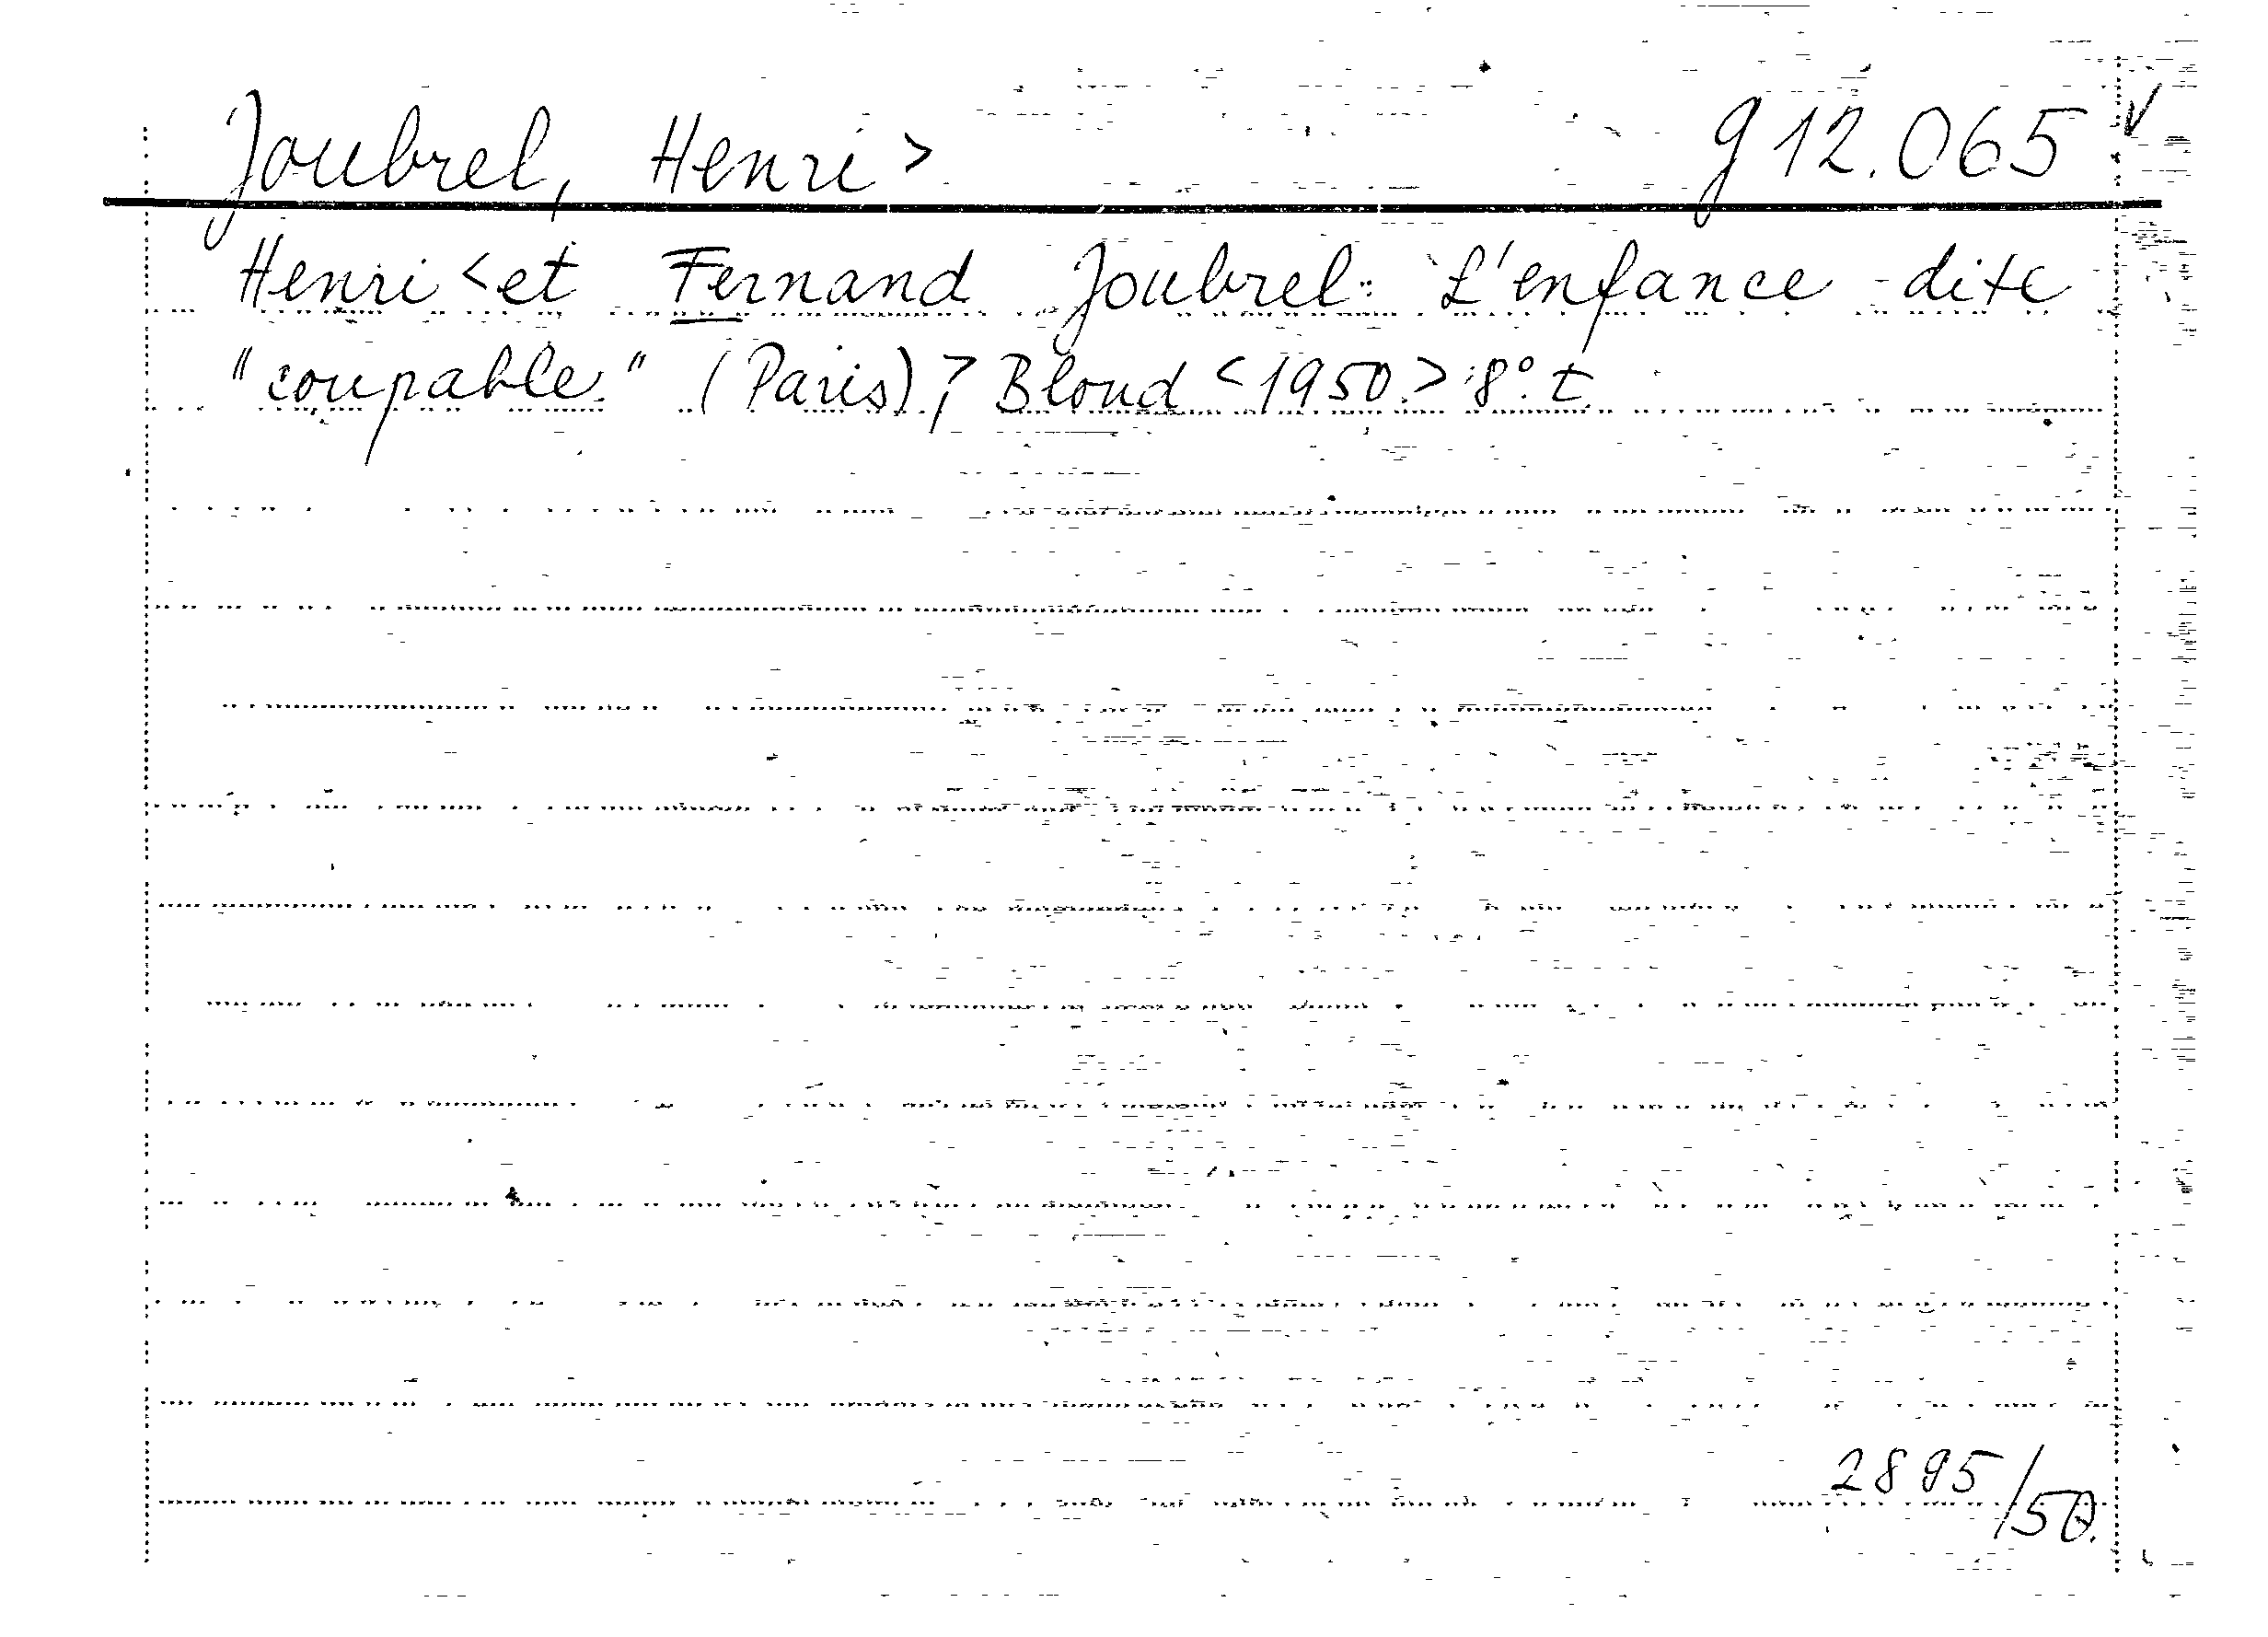 Joubrel, Henri> g 12.065 √
Henri <et Fernand Joubrel: L'enfance dite
"coupable" (Paris); Bloud <1950.> 8° t.
2895/50.